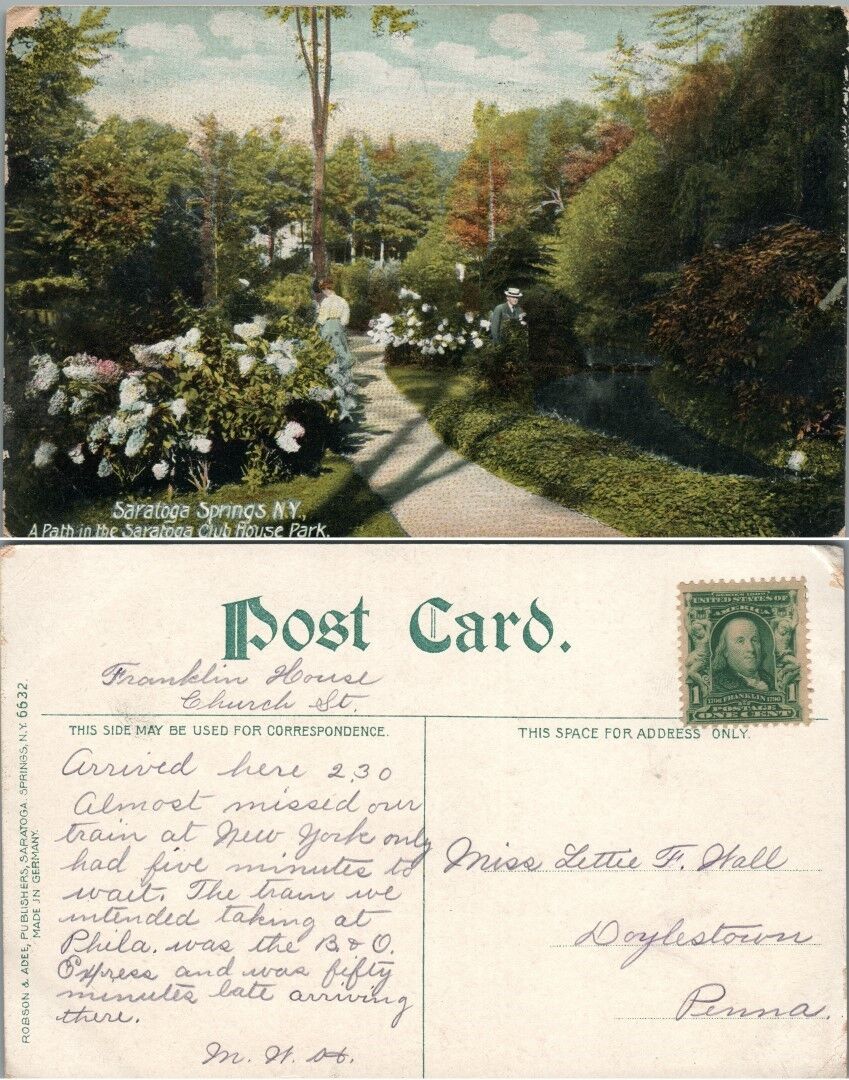 Saratoga Springs N.Y.,
A Path in the Saratoga Club House Park.
Post Card.
SERIES 1902
UNITED STATES OF
AMERICA
1706 FRANKLIN 1790
1 1
POSTAGE
ONE CENT
Franklin House
Church St.
THIS SIDE MAY BE USED FOR CORRESPONDENCE.
THIS SPACE FOR ADDRESS ONLY.
Arrived here 2.30
Almost missed our
train at New York only
had five minutes to
wait. The train we
intended taking at
Phila. was the B & O.
Express and was fifty
minutes late arriving
there.
M. W.
Miss Lettie F. Wall
Doylestown
Penna.
ROBSON & ADEE, PUBLISHERS, SARATOGA SPRINGS, N.Y. 6632
MADE IN GERMANY.